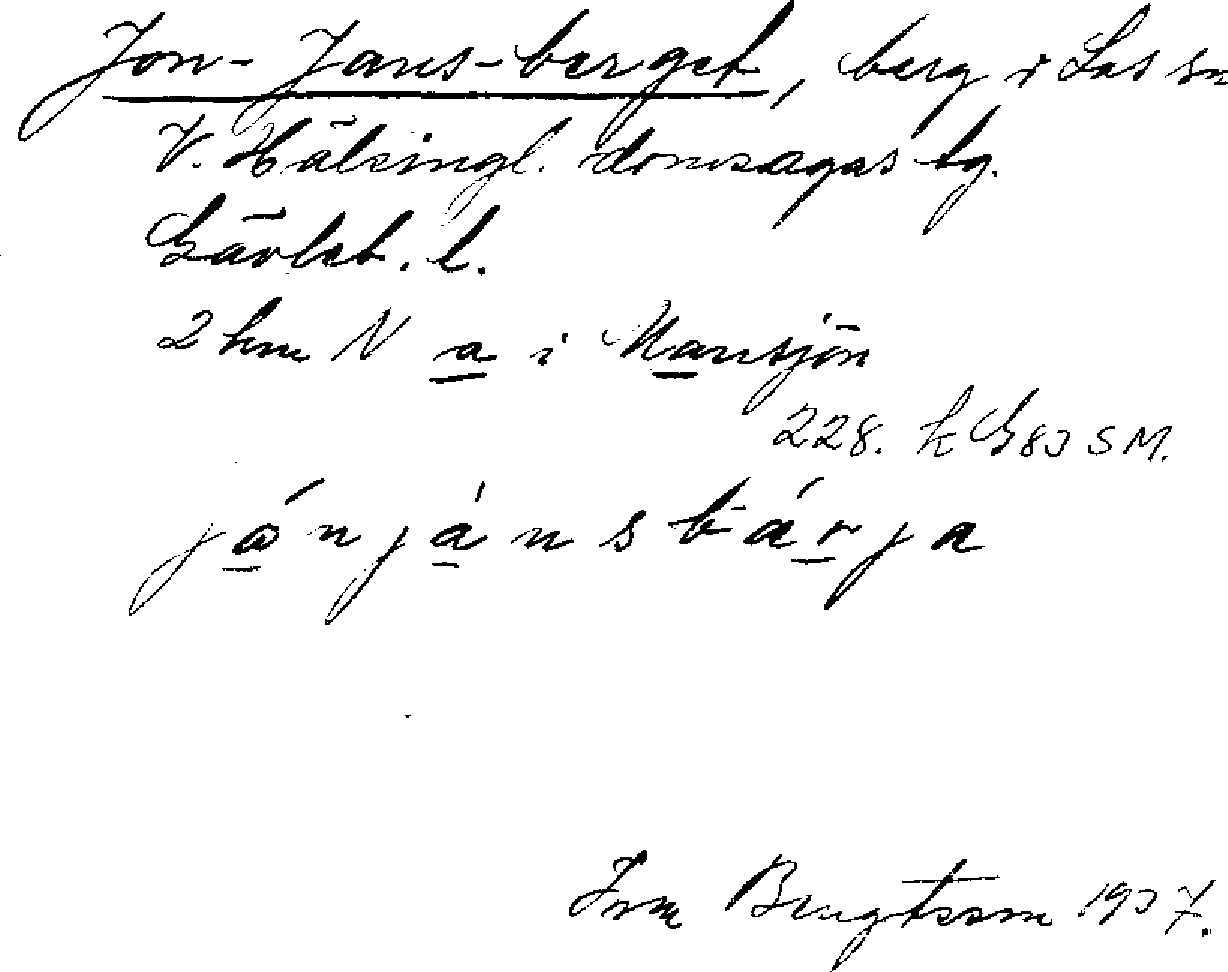 Jon-Jans-berget, berg i Los sn
V. Hälsingl. domsagas tg.
Gävleb. l.
2 km N a i Mansjön
228. k G83 SM.
jó̱nja̱̍nsbáṟja
Bengtsson 1937.